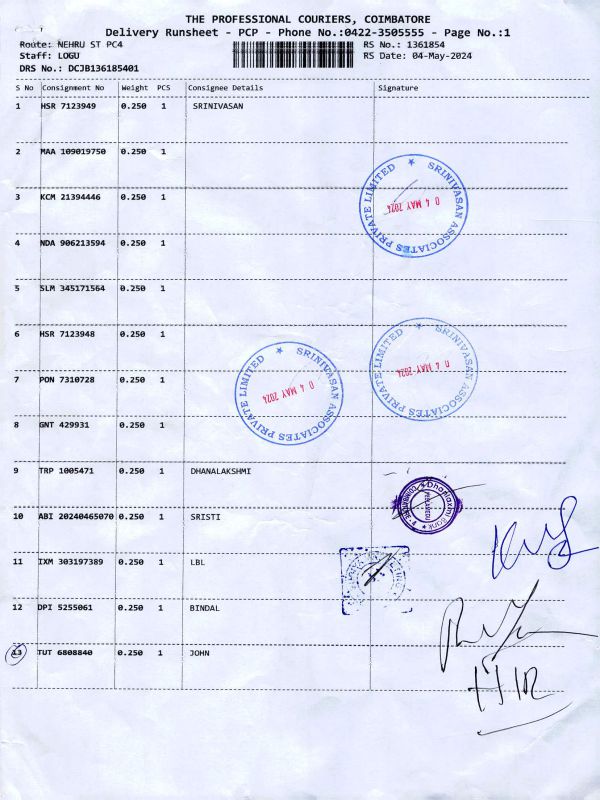 THE PROFESSIONAL COURIERS, COIMBATORE
Delivery Runsheet - PCP - Phone No.:0422-3505555 - Page No.:1
Route: NEHRU ST PC4 RS No.: 1361854
Staff: LOGU RS Date: 04-May-2024
DRS No.: DCJB136185401
S No Consignment No Weight PCS Consignee Details Signature
1 HSR 7123949 0.250 1 SRINIVASAN
2 MAA 109019750 0.250 1
SRINIVASAN ASSOCIATES PRIVATE LIMITED ★
04 MAY 2024
3 KCM 21394446 0.250 1
4 NDA 906213594 0.250 1
5 SLM 345171564 0.250 1
6 HSR 7123948 0.250 1
SRINIVASAN ASSOCIATES PRIVATE LIMITED ★
04 MAY 2024
SRINIVASAN ASSOCIATES PRIVATE LIMITED ★
04 MAY 2024
7 PON 7310728 0.250 1
8 GNT 429931 0.250 1
9 TRP 1005471 0.250 1 DHANALAKSHMI
10 ABI 20240465070 0.250 1 SRISTI
11 IXM 303197389 0.250 1 LBL
12 DPI 5255061 0.250 1 BINDAL
13 TUT 6808840 0.250 1 JOHN